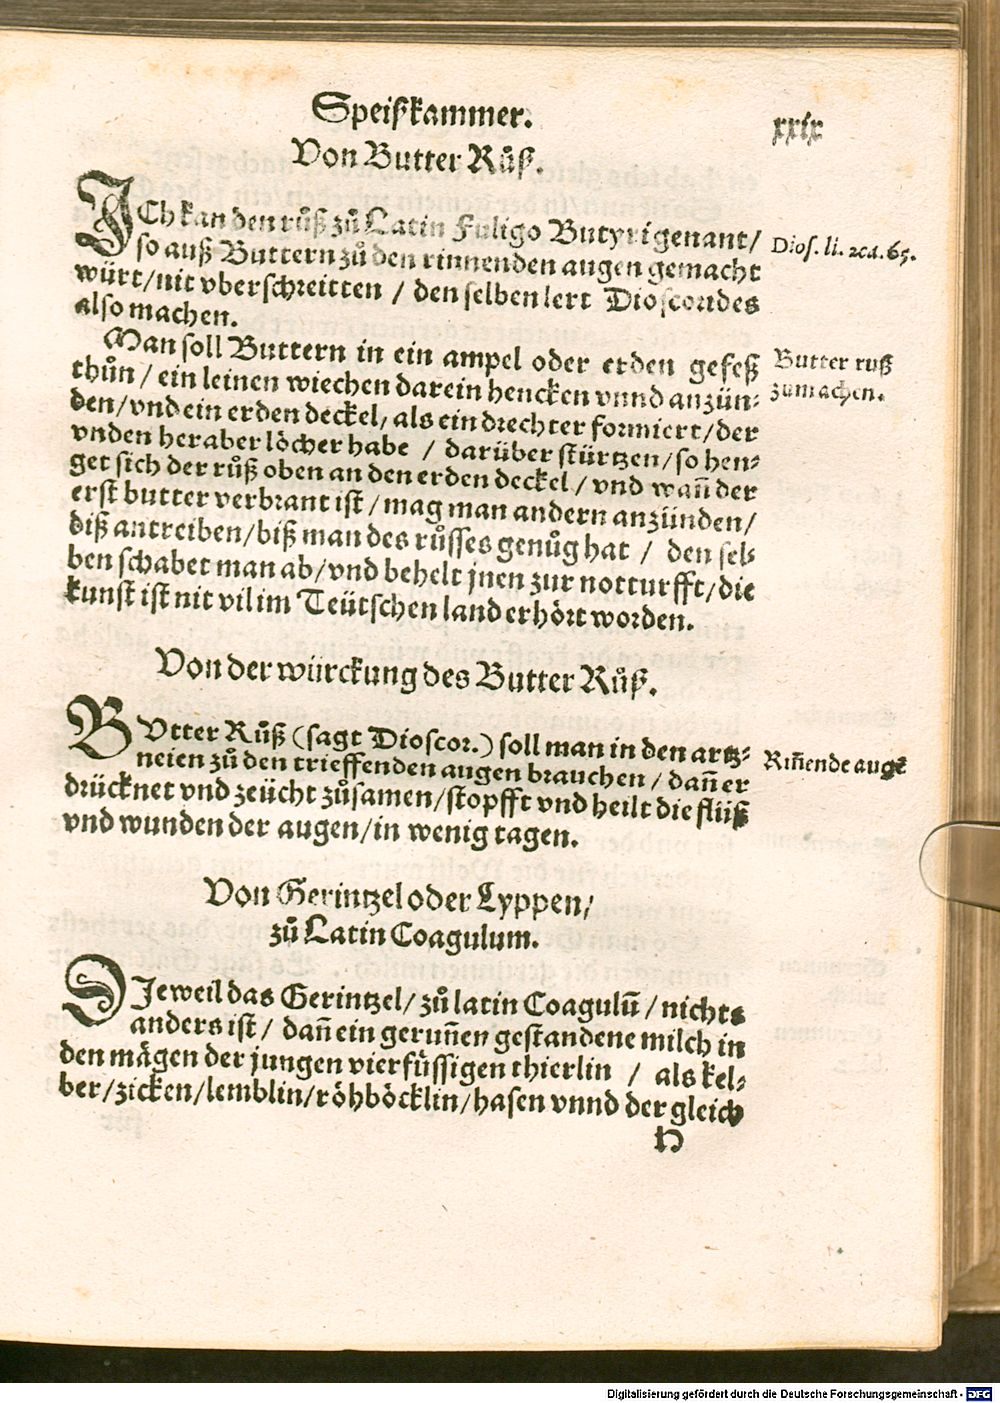 Speißkammer.
xxix
Von Butter Růß.
ICh kan den růß zů Latin Fuligo Butyri genant/
so auß Buttern zů den rinnenden augen gemacht
würt/nit vberschreitten / den selben lert Dioscorides
also machen.
Dios. li. 2ca. 65.
Man soll Buttern in ein ampel oder erden gefeß
thůn / ein leinen wiechen darein hencken vnnd anzün-
den/vnd ein erden deckel, als ein drechter formiert/der
vnden herab er löcher habe / darüber stürtzen/so hen-
get sich der růß oben an den erden deckel / vnd wañ der
erst butter verbrant ist / mag man andern anzünden/
diß antreiben/biß man des růsses genůg hat / den sel-
ben schabet man ab/vnd behelt jnen zur notturfft/die
kunst ist nit vil im Teütschen land erhört worden.
Butter ruß
zumachen.
Von der würckung des Butter Růß.
BVtter Růß (sagt Dioscor.) soll man in den artz-
neien zů den trieffenden augen brauchen / dañ er
drücknet vnd zeücht zůsamen/stopfft vnd heilt die flüß
vnd wunden der augen/in wenig tagen.
Riñende augē
Von Gerintzel oder Lyppen/
zů Latin Coagulum.
DJeweil das Gerintzel/zů latin Coagulū/nichts
anders ist / dañ ein geruñen gestandene milch in
den mägen der jungen vierfüssigen thierlin / als kel-
ber/zicken/lemblin/röhböcklin/hasen vnnd der gleich
H
Digitalisierung gefördert durch die Deutsche Forschungsgemeinschaft - DFG